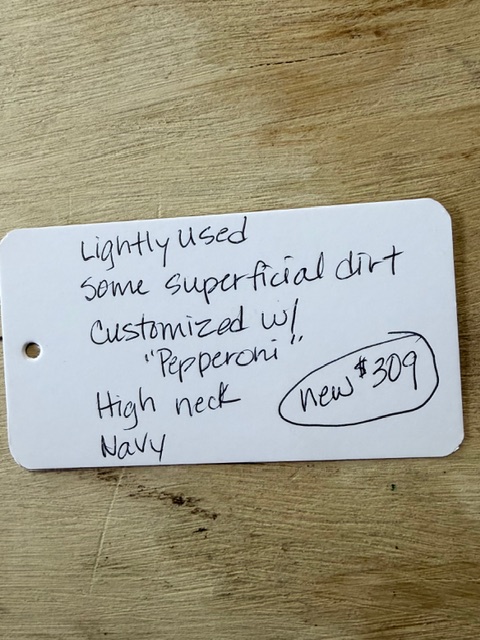 Lightly Used
Some superficial dirt
Customized w/
"Pepperoni"
High neck
Navy
new $309